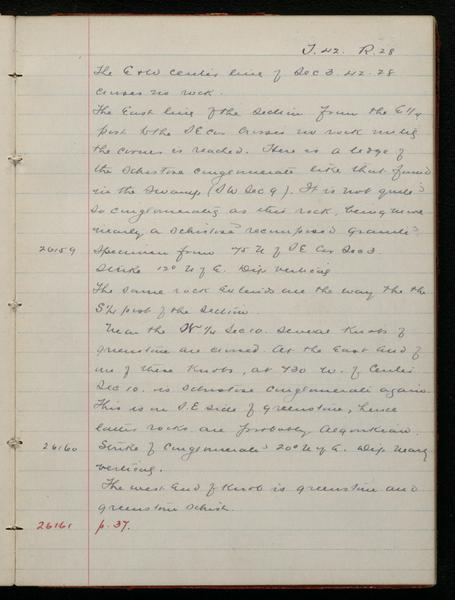 T. 42. R. 28
The E & W center line of Sec 3. 42. 28
crosses no rock.
The East line of the Section from the E 1/4
post to the S E Cor crosses no rock until
the corner is reached. Here is a ledge of
the Schistose conglomerate like that found
in the Swamp (S W Sec 9). It is not quite
so conglomeratic as this rock, being more
nearly a Schistose "recomposed granite"
26159 Specimen from 75 N of S E Cor Sec 3.
Strike 12° N of E. Dip vertical
The same rock extends all the way the the
S 1/4 post of the Section.
Near the W 1/4 Sec 10. several knobs of
greenstone are crossed. At the East end of
one of these knobs, at 430 W. of Center
Sec 10. is Schistose Conglomerate again.
This is on S.E. side of greenstone, hence
latter rocks are probably Algonkian.
26160 Strike of Conglomerate 20° N of E. Dip nearly
vertical.
The west end of knob is greenstone and
greenstone schist.
26161 p. 37.